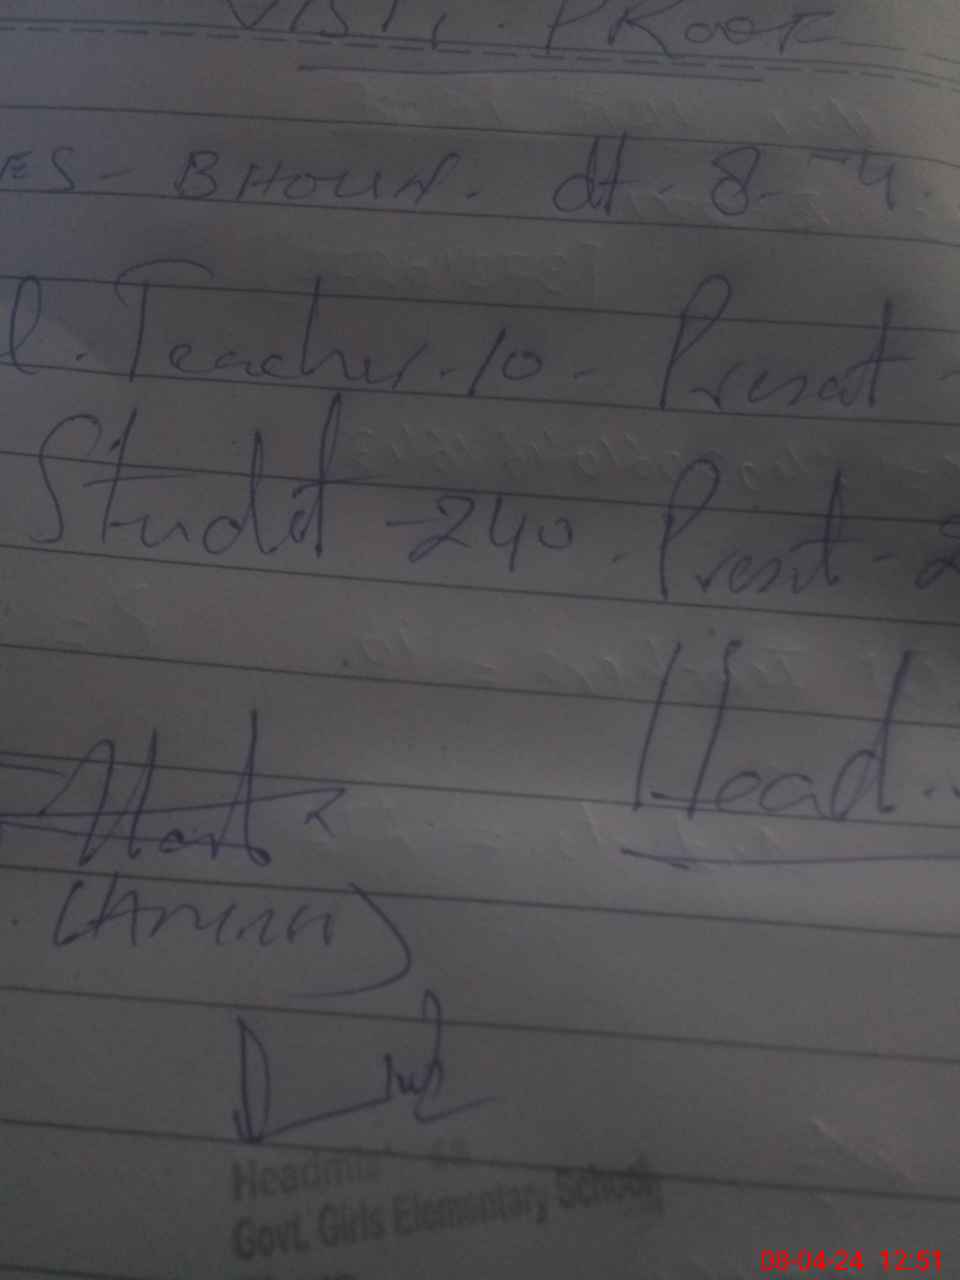 VISIT. PROOF
ES - BHOUN. dt - 8 - 4.
l. Teacher. 10 - Present -
Studt - 240. Presnt - 2
Head.
(Amna)
Headmistress
Govt. Girls Elementary School
08-04-24 12:51